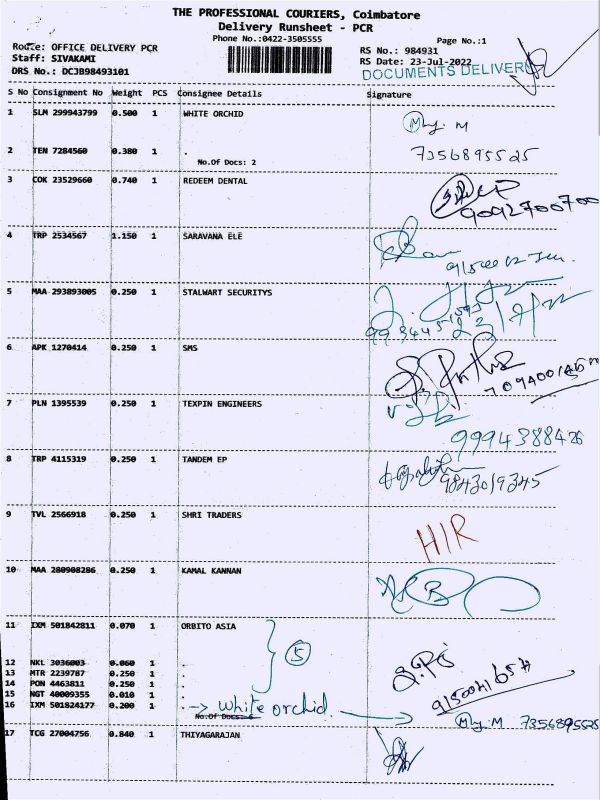 THE PROFESSIONAL COURIERS, Coimbatore
Delivery Runsheet - PCR
Phone No.:0422-3505555
Page No.:1
Route: OFFICE DELIVERY PCR
RS No.: 984931
Staff: SIVAKAMI
RS Date: 23-Jul-2022
DRS No.: DCJB98493101
DOCUMENTS DELIVERY
S No Consignment No Weight PCS Consignee Details Signature
1 SLM 299943799 0.500 1 WHITE ORCHID
2 TEN 7284560 0.380 1 . 7356895525
No.Of Docs: 2
3 COK 23529660 0.740 1 REDEEM DENTAL
9092700700
4 TRP 2534567 1.150 1 SARAVANA ELE
5 MAA 293893005 0.250 1 STALWART SECURITYS
6 APK 1270414 0.250 1 SMS
7 PLN 1395539 0.250 1 TEXPIN ENGINEERS
9994388426
8 TRP 4115319 0.250 1 TANDEM EP
9843019345
9 TVL 2566918 0.250 1 SHRI TRADERS
10 MAA 280908286 0.250 1 KAMAL KANNAN
11 IXM 501842811 0.070 1 ORBITO ASIA
5
12 NKL 3036003 0.060 1 .
13 MTR 2239787 0.250 1 .
14 PON 4463811 0.250 1 .
15 NGT 40009355 0.010 1 .
16 IXM 501824177 0.200 1 . → White orchid.
No.Of Docs: 6
7356895525
17 TCG 27004756 0.840 1 THIYAGARAJAN